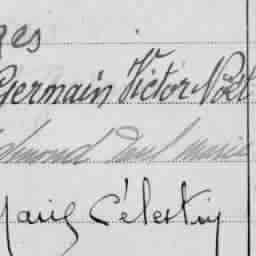 ges
Germain Victor Noël
Edmond Paul Marie
Marie Célestin